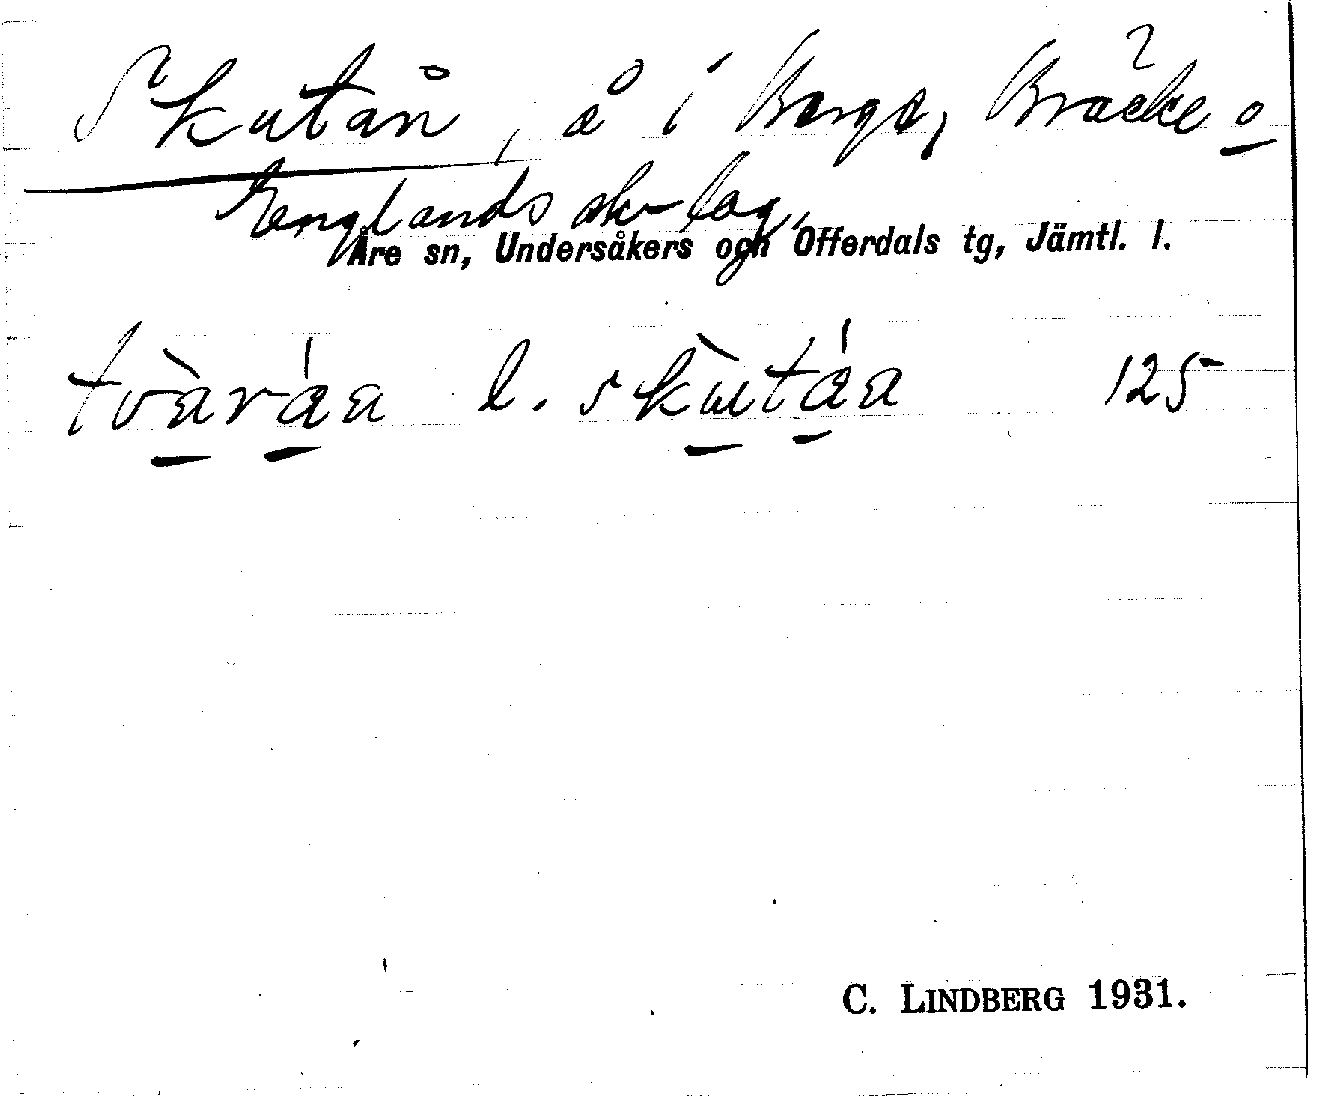 Skutån, å i Bergs, Bräcke o
Englands skvlag,
Åre sn, Undersåkers och Offerdals tg, Jämtl. l.
tvàráa l. skùtáa 125
C. LINDBERG 1931.